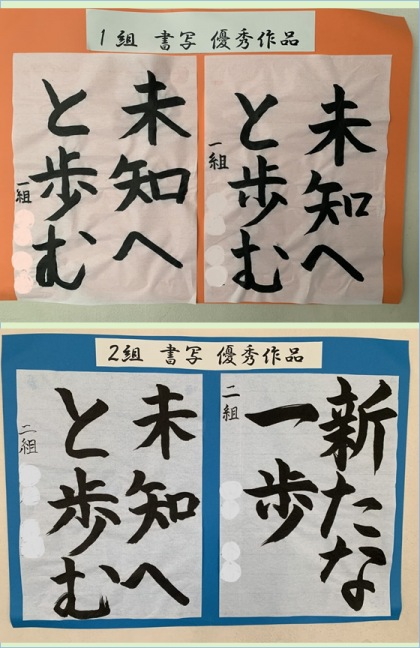 1組 書写 優秀作品
未知へ
と歩む
一組
未知へ
と歩む
一組
2組 書写 優秀作品
新たな
一歩
二組
未知へ
と歩む
二組